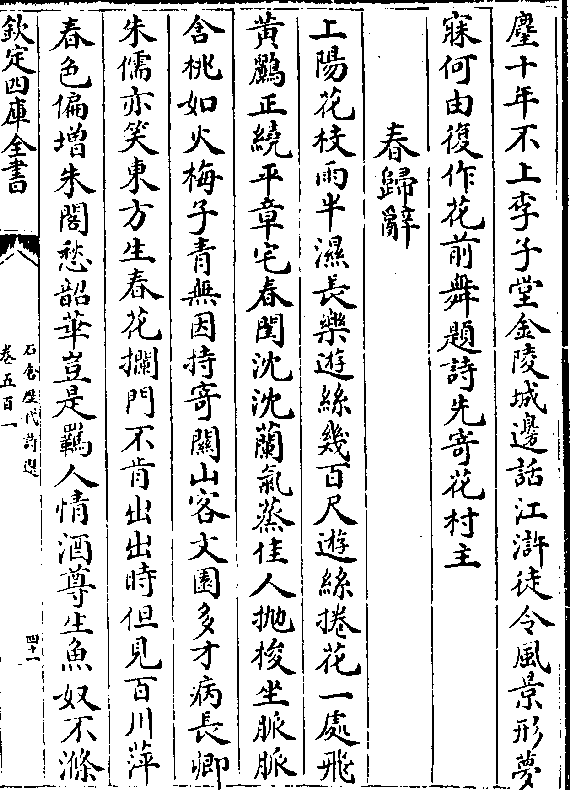 塵十年不上李子堂金陵城邊話江滸徒令風景形夢
寐何由復作花前舞題詩先寄花村主
春歸辭
上陽花枝雨半濕長樂遊絲幾百尺遊絲捲花一處飛
黄鸝正繞平章宅春閨沈沈蘭氣蒸佳人拋梭坐脈脈
含桃如火梅子青無因持寄關山客文園多才病長卿
朱儒亦笑東方生春花攔門不肯出出時但見百川萍
春色偏增朱閣愁韶華豈是羈人情酒尊生魚奴不滌
欽定四庫全書
石倉歷代詩選
卷五百一
四十一